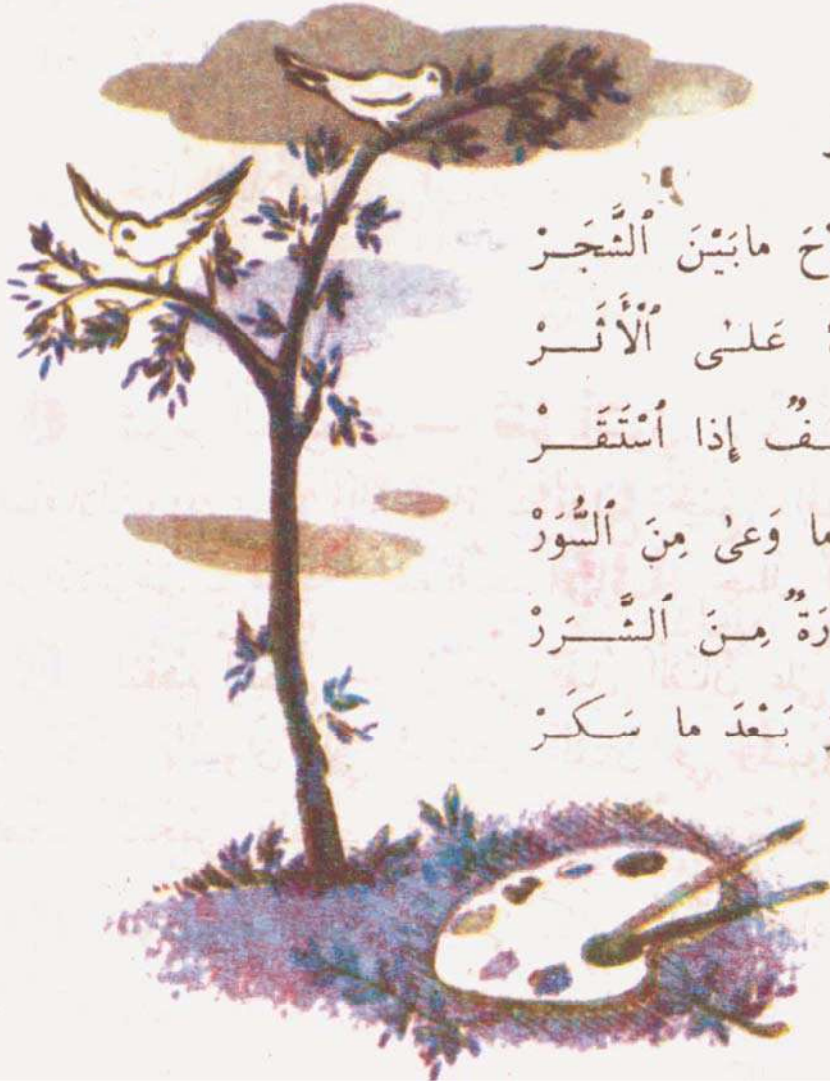 ما بَيْنَ ٱلشَّجَرْ
عَلىٰ ٱلْأَثَرْ
إِذا ٱسْتَقَرْ
ما وَعىٰ مِنَ ٱلسُّوَرْ
مِنَ ٱلشَّرَرْ
بَعْدَ ما سَكَرْ